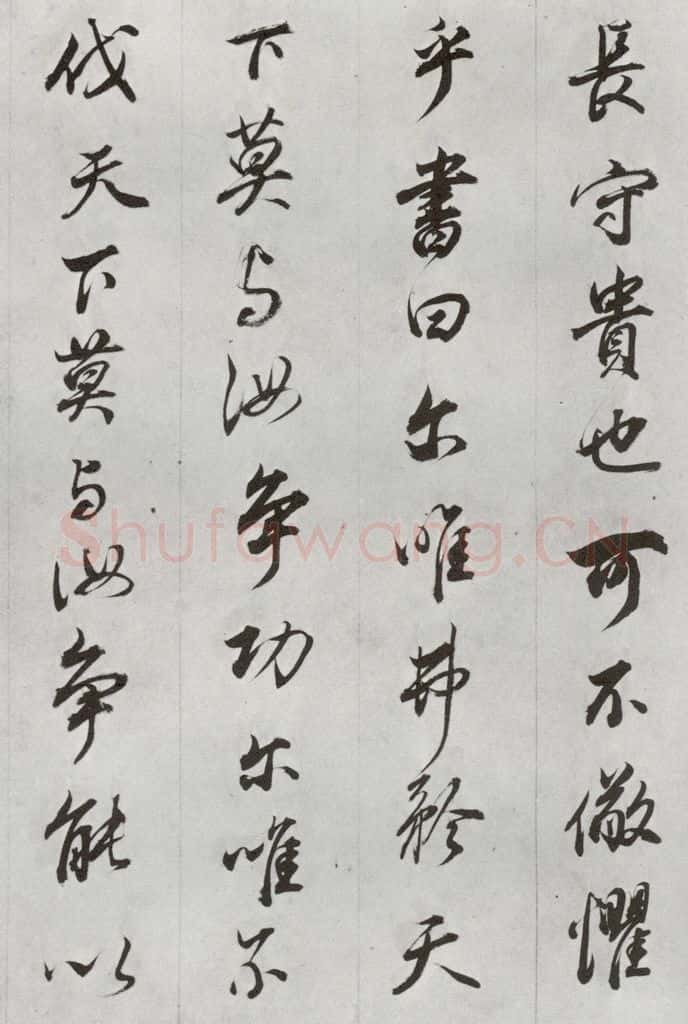 長守貴也可不儆懼
乎書曰尔唯弗矜天
下莫与汝争功尔唯不
伐天下莫与汝争能以
Shufawang.CN